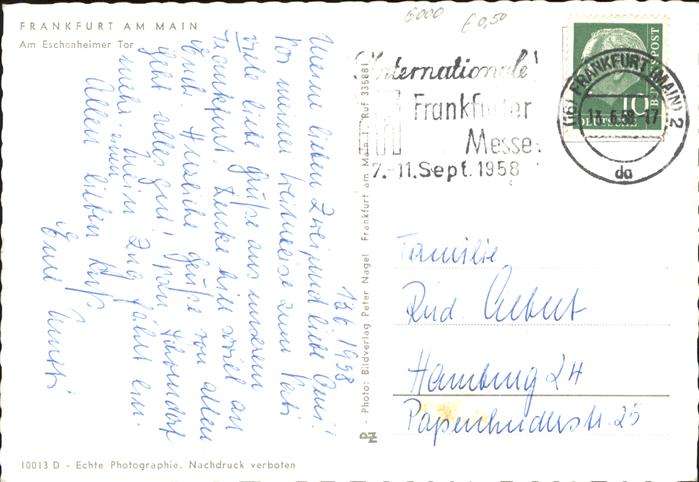 FRANKFURT AM MAIN
Am Eschenheimer Tor
5000
€ 0,50
Internationale
Frankfurter
Messe
7.-11. Sept. 1958
(16) FRANKFURT (MAIN) 2
da
10
DEUTSCHE
BUNDESPOST
13.6.1958
Meine lieben Zwei und liebe Omi!
Vor meiner Weiterreise zum Vati
viele liebe Grüße aus unserem
Frankfurt. Denke hier viel an
Euch! Herzliche Grüße von allen
geht alles gut!
mehr
Mein Zug fährt ein.
Allen lieben Kuß
Eure
- Photo: Bildverlag Peter Nagel - Frankfurt am Main 1, Ruf 335881
Familie
Rud.
Hamburg 24
Papenhuderstr. 25
10013 D - Echte Photographie. Nachdruck verboten